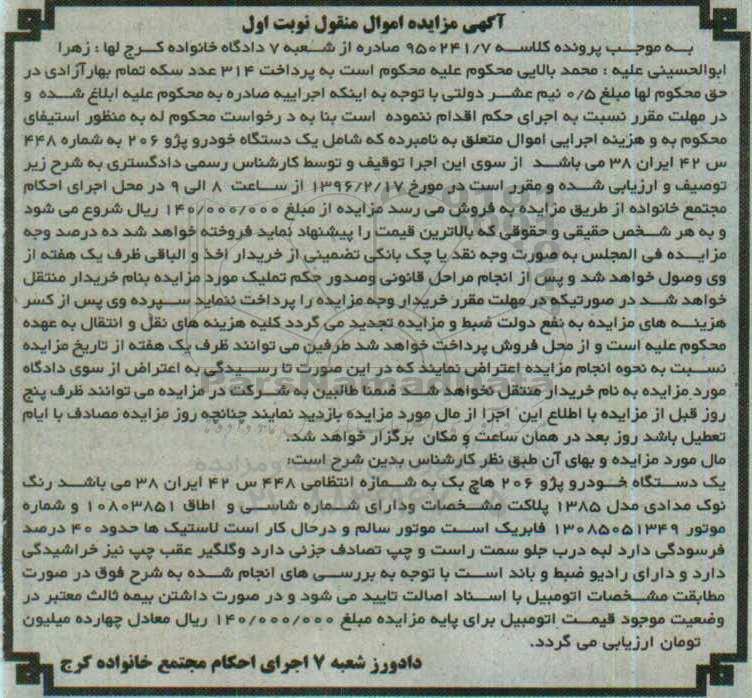 آگهی مزایده اموال منقول نوبت اول
به موجب پرونده کلاسه ۹۵۰۲۴۱/۷ صادره از شعبه ۷ دادگاه خانواده کرج لها : زهرا
ابوالحسینی علیه : محمد بالایی محکوم علیه محکوم است به پرداخت ۳۱۴ عدد سکه تمام بهارآزادی در
حق محکوم لها مبلغ ۰/۵ نیم عشر دولتی با توجه به اینکه اجراییه صادره به محکوم علیه ابلاغ شده و
در مهلت مقرر نسبت به اجرای حکم اقدام ننموده است بنا به د رخواست محکوم له به منظور استیفای
محکوم به و هزینه اجرایی اموال متعلق به نامبرده که شامل یک دستگاه خودرو پژو ۲۰۶ به شماره ۴۴۸
س ۴۲ ایران ۳۸ می باشد از سوی این اجرا توقیف و توسط کارشناس رسمی دادگستری به شرح زیر
توصیف و ارزیابی شده و مقرر است در مورخ ۱۳۹۶/۲/۱۷ از ساعت ۸ الی ۹ در محل اجرای احکام
مجتمع خانواده از طریق مزایده به فروش می رسد مزایده از مبلغ ۱۴۰/۰۰۰/۰۰۰ ریال شروع می شود
و به هر شخص حقیقی و حقوقی که بالاترین قیمت را پیشنهاد نماید فروخته خواهد شد ده درصد وجه
مزایده فی المجلس به صورت وجه نقد یا چک بانکی تضمینی از خریدار اخذ و الباقی ظرف یک هفته از
وی وصول خواهد شد و پس از انجام مراحل قانونی وصدور حکم تملیک مورد مزایده بنام خریدار منتقل
خواهد شد در صورتیکه در مهلت مقرر خریدار وجه مزایده را پرداخت ننماید سپرده وی پس از کسر
هزینه های مزایده به نفع دولت ضبط و مزایده تجدید می گردد کلیه هزینه های نقل و انتقال به عهده
محکوم علیه است و از محل فروش پرداخت خواهد شد طرفین می توانند ظرف یک هفته از تاریخ مزایده
نسبت به نحوه انجام مزایده اعتراض نمایند که در این صورت تا رسیدگی به اعتراض از سوی دادگاه
مورد مزایده به نام خریدار منتقل نخواهد شد ضمنا طالبین به شرکت در مزایده می توانند ظرف پنج
روز قبل از مزایده با اطلاع این اجرا از مال مورد مزایده بازدید نمایند چنانچه روز مزایده مصادف با ایام
تعطیل باشد روز بعد در همان ساعت و مکان برگزار خواهد شد.
مال مورد مزایده و بهای آن طبق نظر کارشناس بدین شرح است:
یک دستگاه خودرو پژو ۲۰۶ هاچ بک به شماره انتظامی ۴۴۸ س ۴۲ ایران ۳۸ می باشد رنگ
نوک مدادی مدل ۱۳۸۵ پلاکت مشخصات ودارای شماره شاسی و اطاق ۱۰۸۰۳۸۵۱ و شماره
موتور ۱۳۰۸۵۰۵۱۳۴۹ فابریک است موتور سالم و درحال کار است لاستیک ها حدود ۴۰ درصد
فرسودگی دارد لبه درب جلو سمت راست و چپ تصادف جزئی دارد وگلگیر عقب چپ نیز خراشیدگی
دارد و دارای رادیو ضبط و باند است با توجه به بررسی های انجام شده به شرح فوق در صورت
مطابقت مشخصات اتومبیل با اسناد اصالت تایید می شود و در صورت داشتن بیمه ثالث معتبر در
وضعیت موجود قیمت اتومبیل برای پایه مزایده مبلغ ۱۴۰/۰۰۰/۰۰۰ ریال معادل چهارده میلیون
تومان ارزیابی می گردد.
دادورز شعبه ۷ اجرای احکام مجتمع خانواده کرج